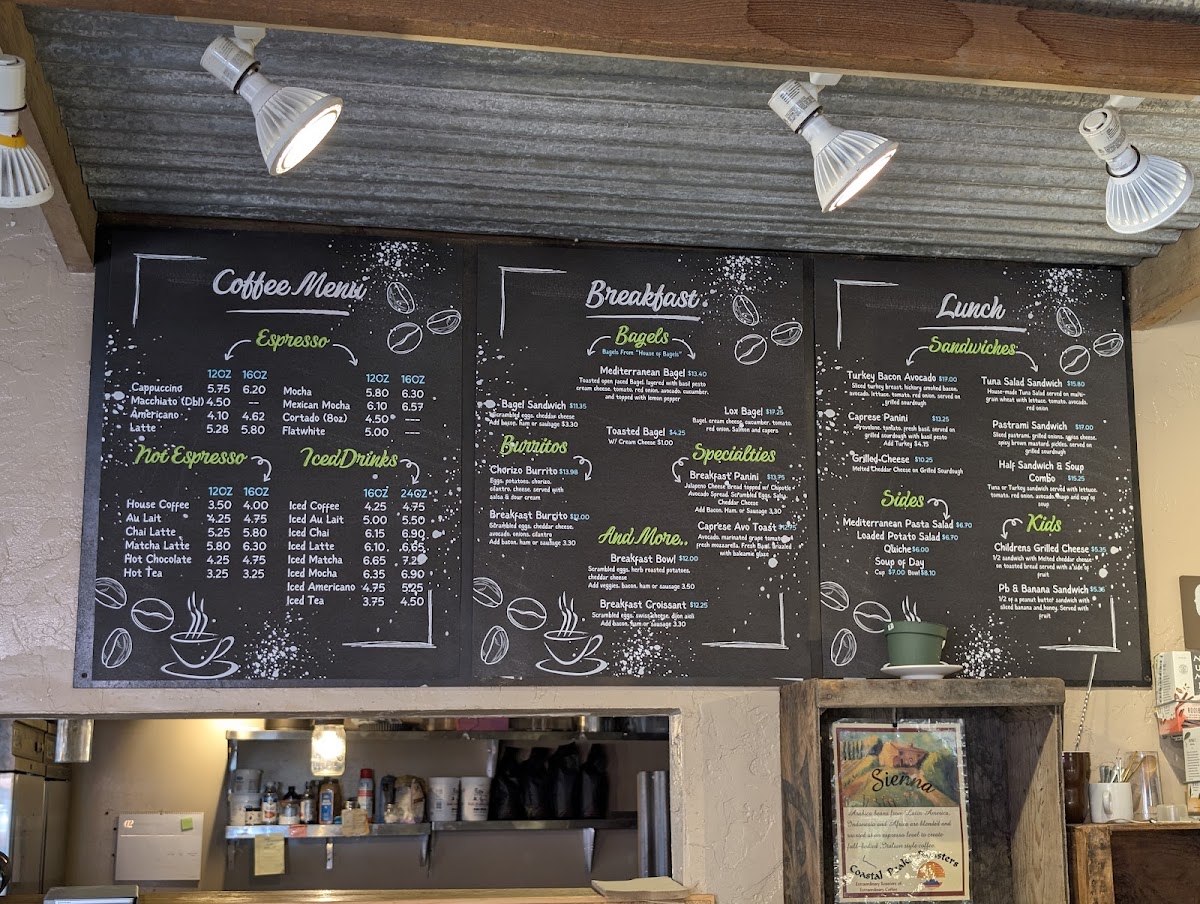 Coffee Menu
Espresso
12OZ 16OZ
Cappuccino 5.75 6.20
Macchiato (Dbl) 4.50 ----
Americano 4.10 4.62
Latte 5.28 5.80
12OZ 16OZ
Mocha 5.80 6.30
Mexican Mocha 6.10 6.57
Cortado (8oz) 4.50 ----
Flatwhite 5.00 ----
Not Espresso
12OZ 16OZ
House Coffee 3.50 4.00
Au Lait 4.25 4.75
Chai Latte 5.25 5.80
Matcha Latte 5.80 6.30
Hot Chocolate 4.25 4.75
Hot Tea 3.25 3.25
Iced Drinks
16OZ 24OZ
Iced Coffee 4.25 4.75
Iced Au Lait 5.00 5.50
Iced Chai 6.15 6.90
Iced Latte 6.10 6.65
Iced Matcha 6.65 7.25
Iced Mocha 6.35 6.90
Iced Americano 4.75 5.25
Iced Tea 3.75 4.50
Breakfast
Bagels
Bagels From "House of Bagels"
Mediterranean Bagel $13.40
Toasted open faced Bagel, layered with basil pesto
cream cheese, tomato, red onion, avocado, cucumber,
and topped with lemon pepper
Bagel Sandwich $11.35
Scrambled eggs, cheddar cheese
Add bacon, ham or sausage $3.30
Lox Bagel $17.25
Bagel, cream cheese, cucumber, tomato,
red onion, Salmon and capers
Toasted Bagel $4.25
W/ Cream Cheese $1.00
Burritos
Chorizo Burrito $13.98
Eggs, potatoes, chorizo,
cilantro, cheese, served with
salsa & sour cream
Breakfast Burrito $11.00
Scrambled eggs, cheddar cheese,
avocado, onions, cilantro
Add bacon, ham or sausage 3.30
Specialties
Breakfast Panini $13.75
Jalapeno Cheese Bread topped w/ Chipotle
Avocado Spread, Scrambled Eggs, Salsa,
Cheddar Cheese
Add Bacon, Ham, or Sausage 3.30
Caprese Avo Toast $12.75
Avocado, marinated grape tomato,
fresh mozzarella, Fresh Basil, Drizzled
with balsamic glaze
And More..
Breakfast Bowl $12.00
Scrambled eggs, herb roasted potatoes,
cheddar cheese
Add veggies, bacon, ham or sausage 3.50
Breakfast Croissant $12.25
Scrambled eggs, swiss cheese, dijon aioli
Add bacon, ham or sausage 3.30
Lunch
Sandwiches
Turkey Bacon Avocado $19.00
Sliced turkey breast, hickory smoked bacon,
avocado, lettuce, tomato, red onion, served on
grilled sourdough
Caprese Panini $13.25
Provolone, tomato, fresh basil, served on
grilled sourdough with basil pesto
Add Turkey $4.75
Grilled Cheese $10.25
Melted Cheddar Cheese on Grilled Sourdough
Tuna Salad Sandwich $15.80
House made Tuna Salad served on multi-
grain wheat with lettuce, tomato, avocado,
red onion
Pastrami Sandwich $17.00
Sliced pastrami, grilled onions, swiss cheese,
spicy brown mustard, pickles, served on
grilled sourdough
Half Sandwich & Soup
Combo $15.25
Tuna or Turkey sandwich served with lettuce,
tomato, red onion, avocado, mayo and cup of
soup
Sides
Mediterranean Pasta Salad $6.70
Loaded Potato Salad $6.70
Quiche $6.00
Soup of Day
Cup $7.00 Bowl $8.10
Kids
Childrens Grilled Cheese $5.35
1/2 sandwich with Melted cheddar cheese
on toasted bread served with a side of
fruit
Pb & Banana Sandwich $5.36
1/2 of a peanut butter sandwich with
sliced banana and honey. Served with
fruit
Sienna
Arabica beans from Latin America,
Indonesia and Africa are blended and
roasted at an espresso level to create
full-bodied, Italian style coffee.
Coastal Peaks Roasters
Extraordinary Roasters of
Extraordinary Coffee